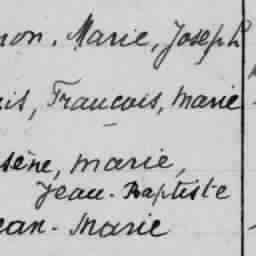 non. Marie, Joseph
is, Francois, Marie
sène, marie,
Jean-Baptiste
ean-Marie